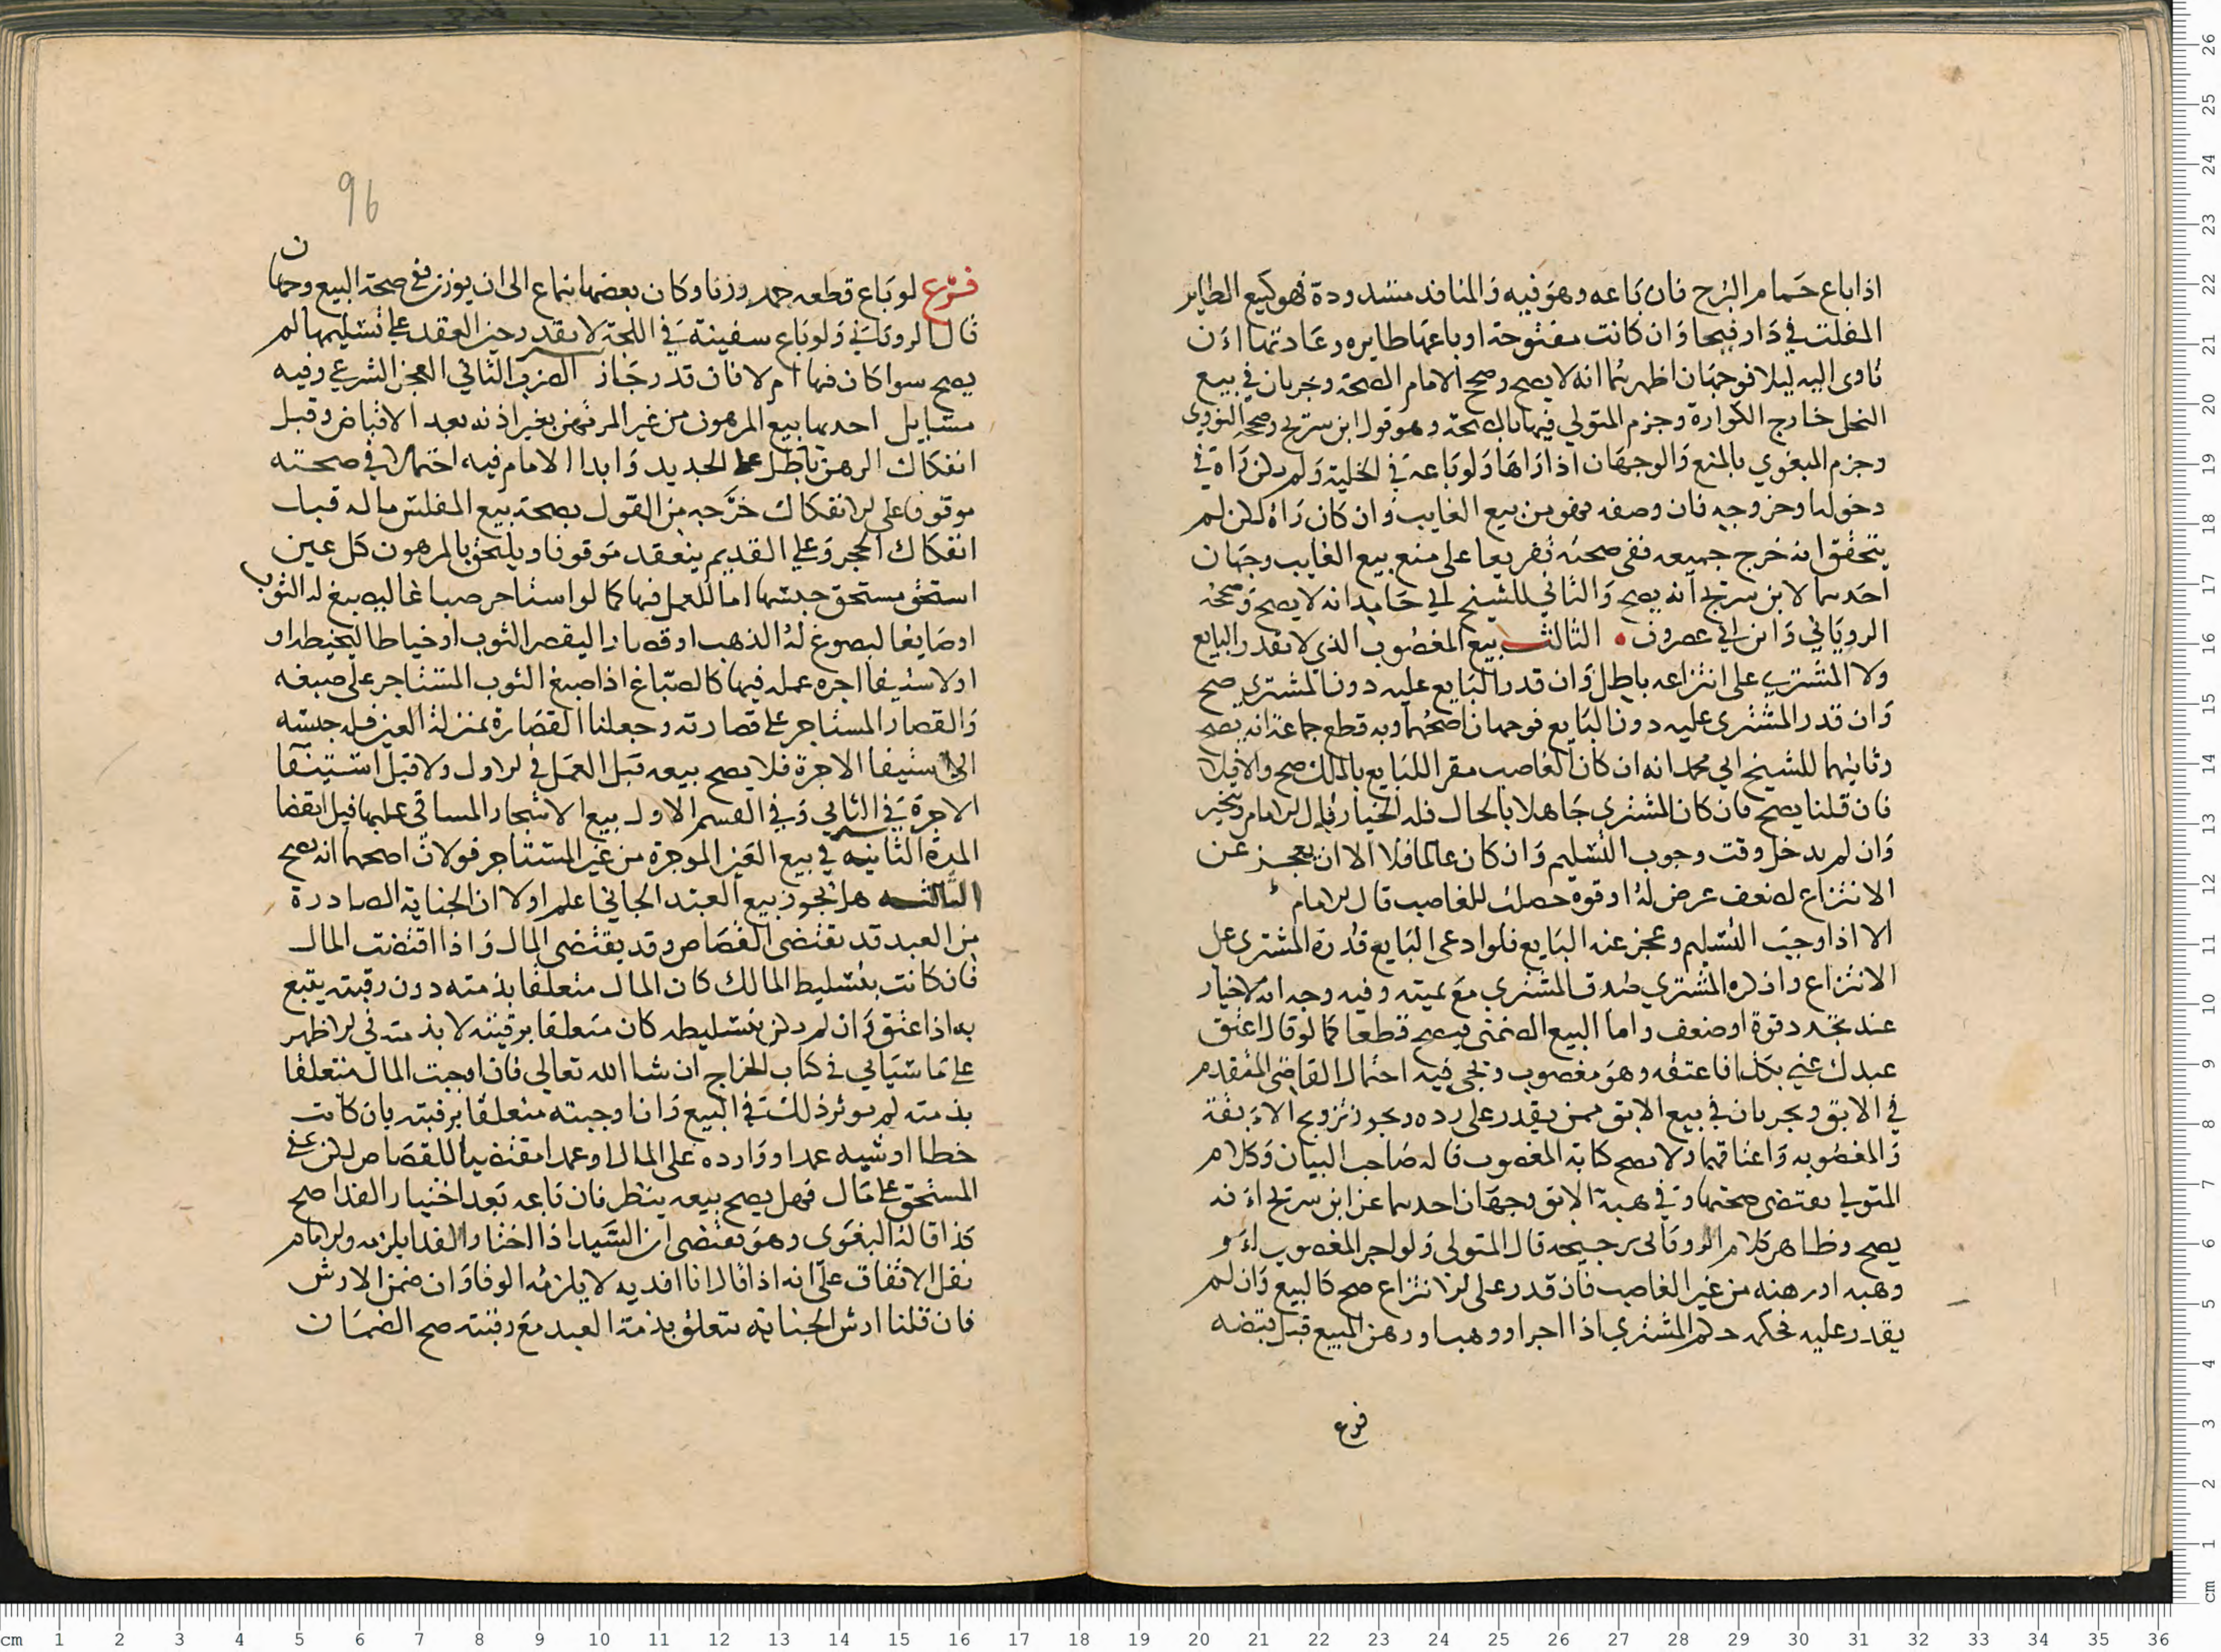 اذا باع حمام البرج فان باعه وهو فيه والمنافد مسدودة فهو كبيع الطاير
المفلت في دار فيحا وان كانت مفتوحة او باعها طايره وعادتها ان
تاوى اليه ليلا فوجهان اظهرهما انه لا يصح وصحح الامام الصحة وجريان في بيع
النحل خارج الكوارة وجزم المتولي فيها بالصحة وهو قول ابن سريج وصححه النووي
وجزم البغوي بالمنع والوجهان اذا راها ولو باعه في الخلية ولم يكن راه في
دخولها وخروجه فان وصفه فهو من بيع الغايب وان كان راه لكن لم
يتحقق انه خرج جميعه ففي صحته تفريعا على منع بيع الغايب وجهان
احدهما لابن سريج انه يصح والثاني للشيخ ابي حامد انه لا يصح وصححه
الروياني وابن ابي عصرون الثالث بيع المغصوب الذي لا يقدر البايع
ولا المشتري على انتزاعه باطل وان قدر البايع عليه دون المشتري صح
وان قدر المشترى عليه دون البايع فوجهان اصحهما وبه قطع جماعة انه يصح
وثانيهما للشيخ ابي محمد انه ان كان الغاصب مقرا للبايع بالملك صح والا فلا
فان قلنا يصح فان كان المشتري جاهلا بالحال فله الخيار قال الامام ويخير
وان لم يدخل وقت وجوب التسليم وان كان عالما فلا الا ان يعجز عن
الانتزاع لضعف عرض له او قوة حصلت للغاصب قال الامام
الا اذا وجب التسليم وعجز عنه البايع فلو ادعى البايع قدرة المشتري على
الانتزاع وانكره المشتري صدق المشتري مع يمينه وفيه وجه انه لا خيار
عند تجدد قوة او ضعف واما البيع الضمني فيصح قطعا كما لو قال اعتق
عبدك عني بكذا فاعتقه وهو مغصوب ويجي فيه احتمال القاضي المتقدم
في الابق ويجريان في بيع الابق ممن يقدر على رده ويجوز تزويج الابقة
والمغصوبه واعتاقهما ولا يصح كتابة المغصوب قاله صاحب البيان وكلام
المتولي يقتضى صحتها وفي هبة الابق وجهان احدهما عن ابن سريج انه
يصح وظاهر كلام الروياني ترجيحه قال المتولى ولو اجر المغصوب او
وهبه او رهنه من غير الغاصب فان قدر على الانتزاع صح كالبيع وان لم
يقدر عليه فحكمه حكم المشتري اذا اجر او وهب او رهن المبيع قبل قبضه
فرع
96
فرع لو باع قطعه جمد وزنا وكان بعضها ينماع الى ان يوزن ففي صحة البيع وجهان
قال الروياني ولو باع سفينة في اللجة لا يقدر حين العقد على تسليمها لم
يصح سوا كان فيها ام لا فان قدر جاز الضرب الثاني العجز الشرعي وفيه
مسايل احدهما بيع المرهون من غير المرتهن بغير اذنه بعد الاقباض وقبل
انفكاك الرهن باطل على الجديد وابدا الامام فيه احتمالا في صحته
موقوفا على الانفكاك خرجه من القول بصحة بيع المفلس ماله قبل
انفكاك الحجر وعلى القديم ينعقد موقوفا ويلتحق بالمرهون كل عين
استحق مستحق حبسها اما للعمل فيها كما لو استاجر صباغا ليصبغ له الثوب
او صايغا ليصوغ له الذهب او قصارا ليقصر الثوب او خياطا ليخيطه او
او لاستيفا اجره عمله فيها كالصباغ اذا صبغ الثوب المستاجر على صبغه
والقصار المستاجر على قصارته وجعلنا القصارة بمنزلة العين فله حبسه
الى استيفا الاجرة فلا يصح بيعه قبل العمل في الاول ولا قبل استيفا
الاجرة في الثاني وفي القسم الاول بيع الاشجار المساقى عليها قبل انقضا
المدة الثانيه في بيع العين الموجرة من غير المستاجر قولان اصحهما انه يصح
الثالثه هل يجوز بيع العبد الجاني اعلم اولا ان الجناية الصادرة
من العبد قد تقتضى القصاص وقد يقتضى المال واذا اقتضت المال
فان كانت بتسليط المالك كان المال متعلقا بذمته دون رقبته يتبع
به اذا عتق وان لم يكن بتسليطه كان متعلقا برقبته لا بذمته في الاظهر
على ما سياتي في كتاب الخراج ان شا الله تعالى فان اوجبت المال متعلقا
بذمته لم يوثر ذلك في البيع وان اوجبته متعلقا برقبته بان كانت
خطا او شبه عمد او وارده على المال او عمدا مقتضيا للقصاص لكن عفى
المستحق على مال فهل يصح بيعه ينظر فان باعه بعد اختيار الفدا صح
كذا قاله البغوى وهو يقتضى ان السيد اذا اختار الفدا يلزمه والامام
نقل الاتفاق على انه اذا قال انا افديه لا يلزمه الوفا وان ضمن الارش
فان قلنا ارش الجناية يتعلق بذمة العبد مع رقبته صح الضمان